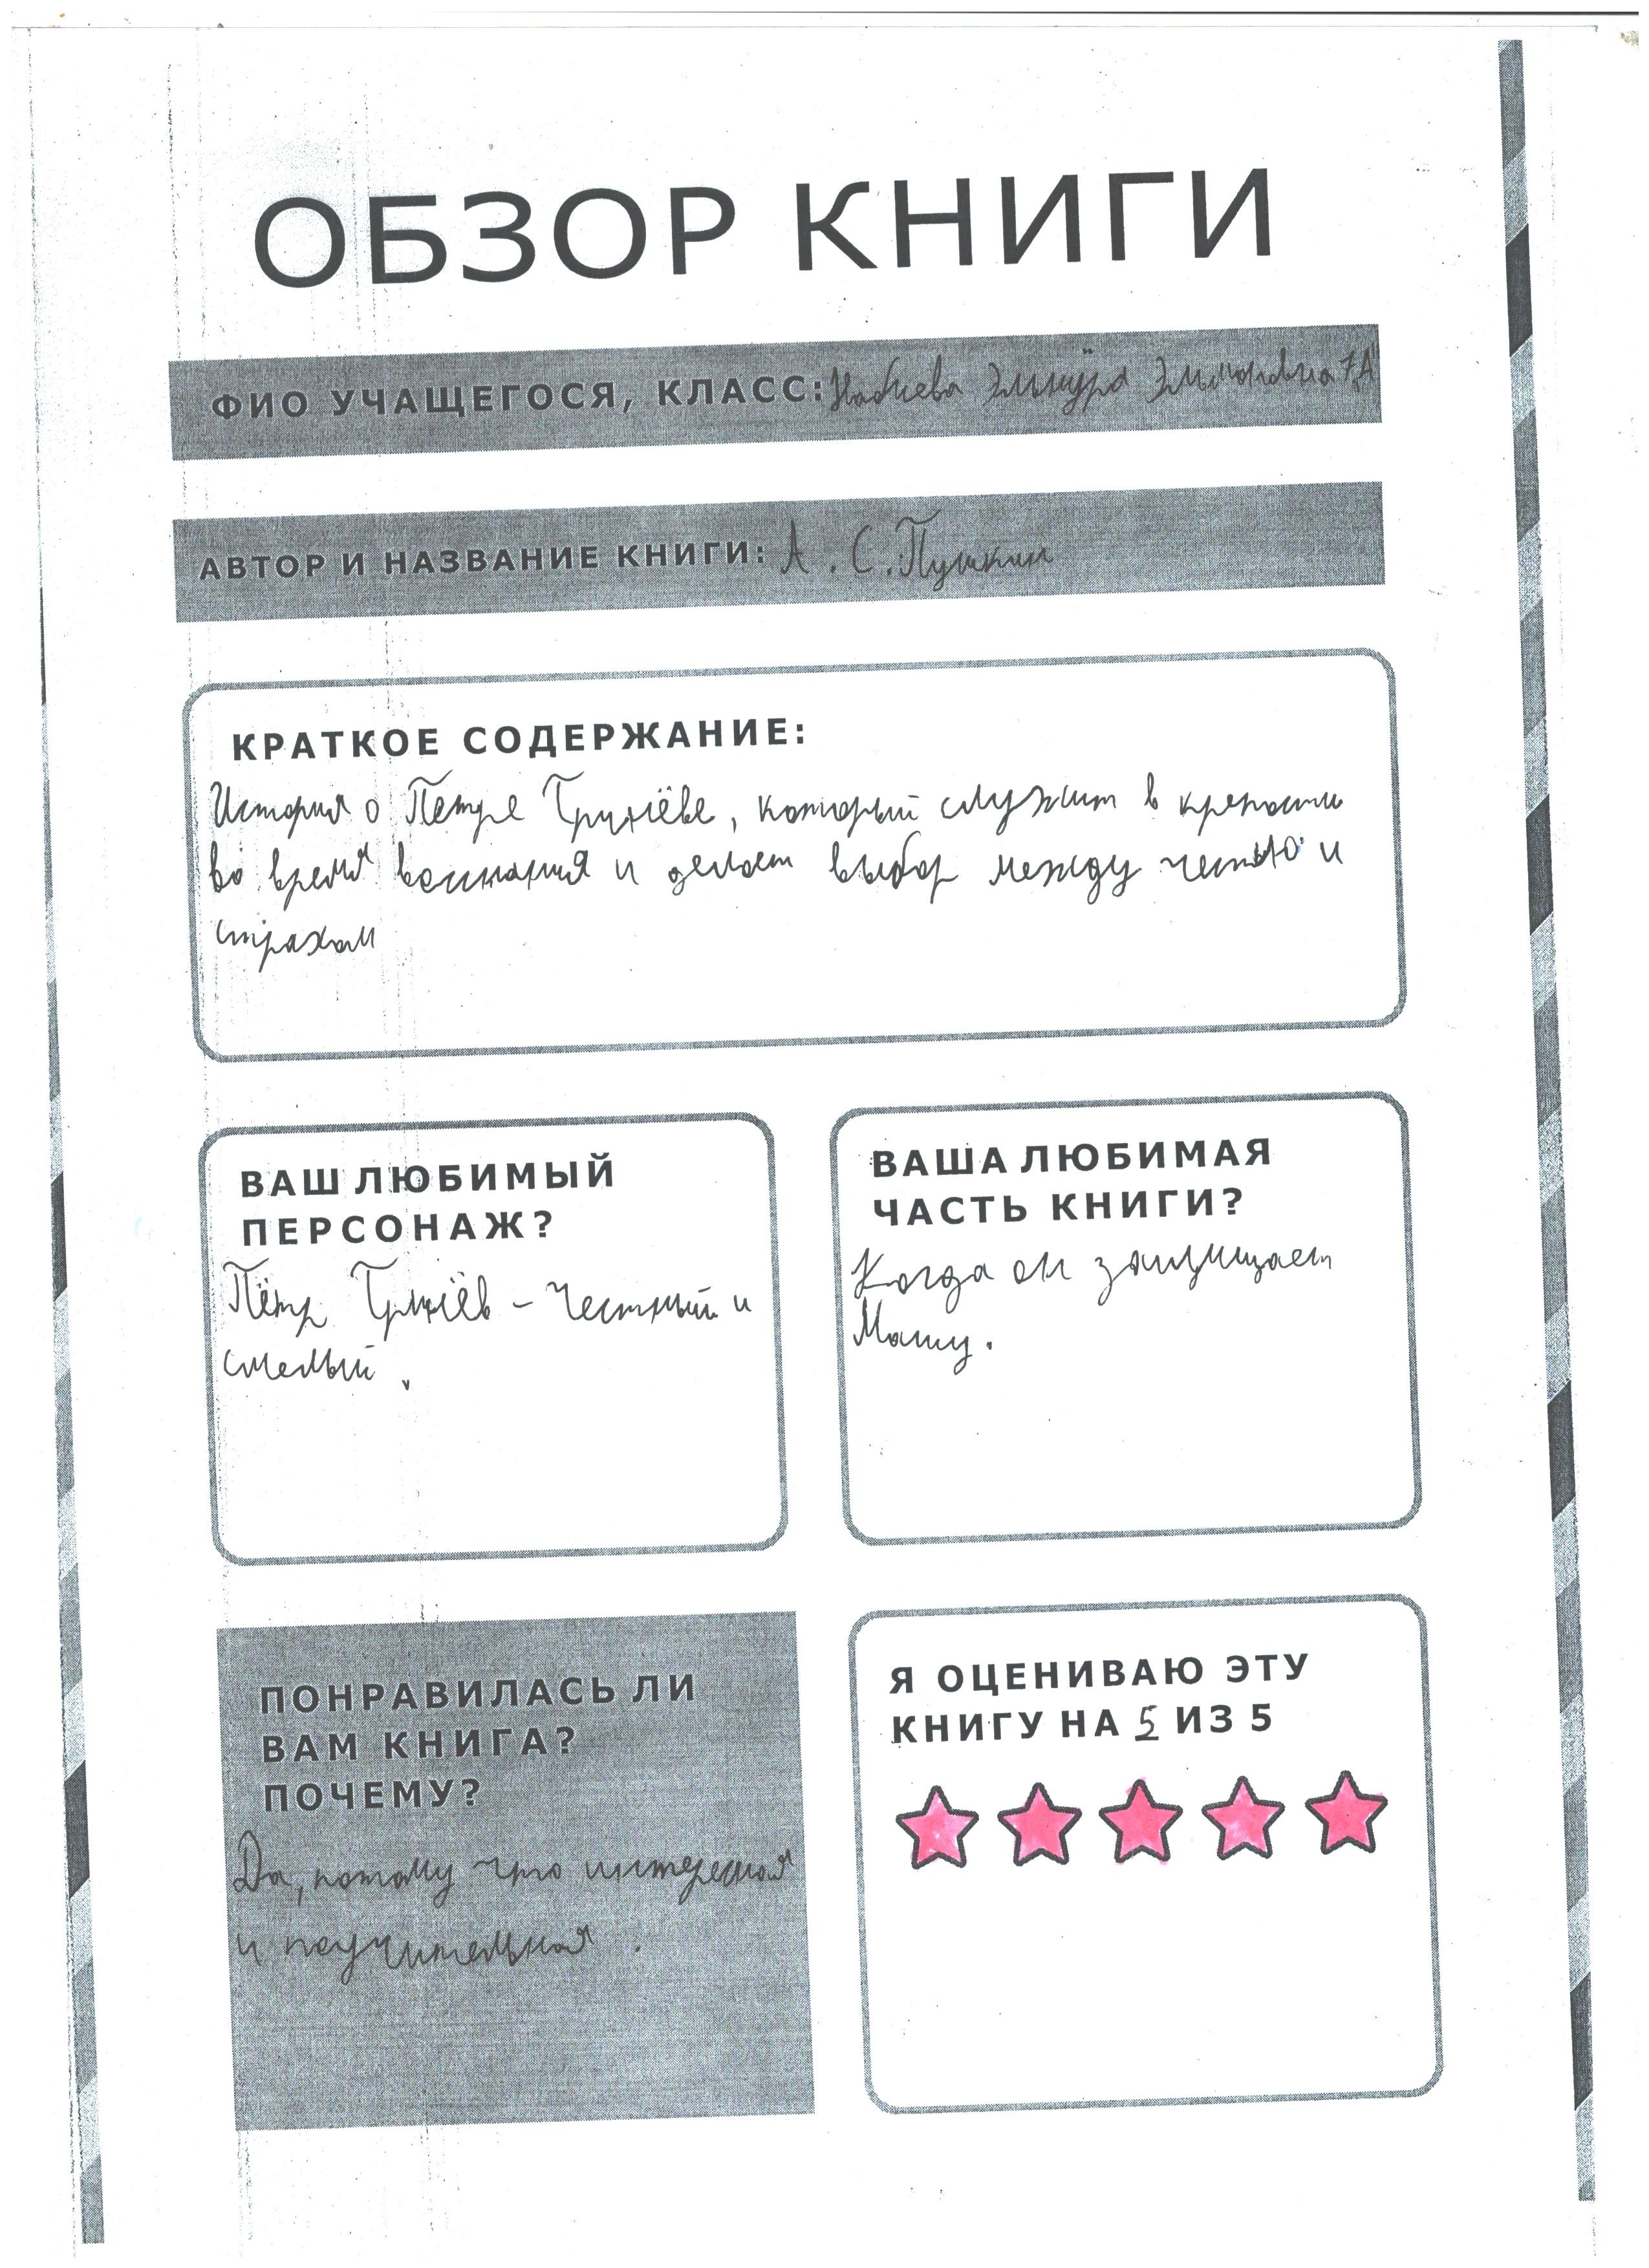 ОБЗОР КНИГИ
ФИО УЧАЩЕГОСЯ, КЛАСС: Набиева 7"А"
АВТОР И НАЗВАНИЕ КНИГИ: А. С. Пушкин
КРАТКОЕ СОДЕРЖАНИЕ:
История о Петре Гринёве, который служит в крепости
во время восстания и делает выбор между честью и
страхом
ВАШ ЛЮБИМЫЙ
ПЕРСОНАЖ?
Пётр Гринёв – честный и
смелый.
ВАША ЛЮБИМАЯ
ЧАСТЬ КНИГИ?
Когда он защищает
Машу.
ПОНРАВИЛАСЬ ЛИ
ВАМ КНИГА?
ПОЧЕМУ?
Да, потому что интересная
и поучительная.
Я ОЦЕНИВАЮ ЭТУ
КНИГУ НА 5 ИЗ 5